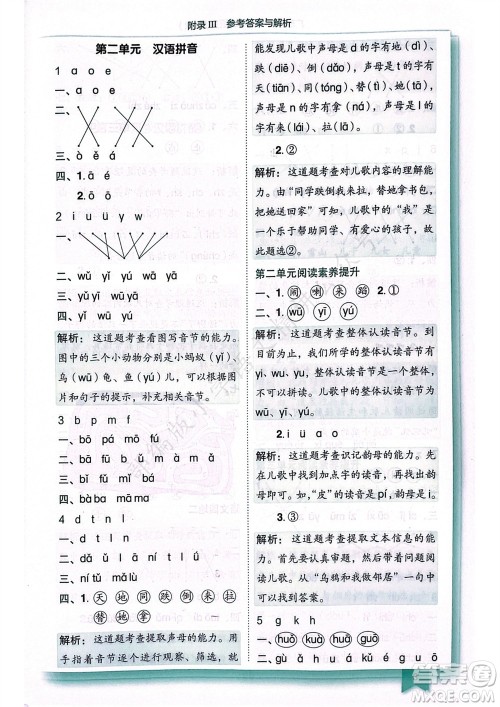 附录 III 参考答案与解析
第二单元 汉语拼音
1 a o e
一、
二、
三、ò ě á
四、1.ā é
2.ā ō
2 i u ü y w
一、
二、wǔ yǐ wū yú
三、yǔ yī wū
四、yǐ wū yú
解析：这道题考查看图写音节的能力。
图中的三个小动物分别是小蚂蚁（yǐ）、
乌（wū）龟、鱼（yú）儿，可以根据
图片和句子的提示，补充相关音节。
3 b p m f
一、bō pá mó fú
二、bǐ pù má fà
四、bàba māma
4 d t n l
二、dǎ ǔ lǐ à ā
三、ní tǔ mǎlù
四、1.天 地 同 跌 拉
替 她 拿
解析：这道题考查提取声母的能力。用
手指着音节逐个进行观察、筛选，就
能发现儿歌中声母是 d 的字有地（dì）、
跌（diē）；儿歌中声母是 t 的字有
天（tiān）、同（tóng）、替（tì）、她（tā）；
儿歌中声母是 n 的字有拿（ná）；儿歌
中声母是 l 的字有来（lái）、拉（lā）。
2.②
解析：这道题考查儿歌内容的理解能力。
由“同学跌倒我来拉，替她拿书包，
把她送回家”可知，儿歌中的“我”是
一个乐于帮助同学、有爱心的孩子，因
此，故选②。
第二单元阅读素养提升
一、1.（闹）喇 来 蹈 1.②
二、1.wū yī yú
解析：这道题考查整体认读音节。
整体认读音节有一个特点，就是整体认读，
不可以拼读。儿歌中的整体认读音节
有 wū、yī、yú。
2.i ü ɑo
解析：这道题考查识记韵母的能力。先
在儿歌中找到加点字的读音，再找到韵
母即可。如，“皮”的读音是pí，韵母是i。
3.③
解析：这道题考查提取文本信息的能力。
首先要认真阅读儿歌，了解儿歌大意，
从儿歌中的“乌鸦和我做邻居”一句中
可以找到答案。
5 g k h
一、huǒ guō kuò huó
二、gù ǎ huá kǔ é guō
答案圈